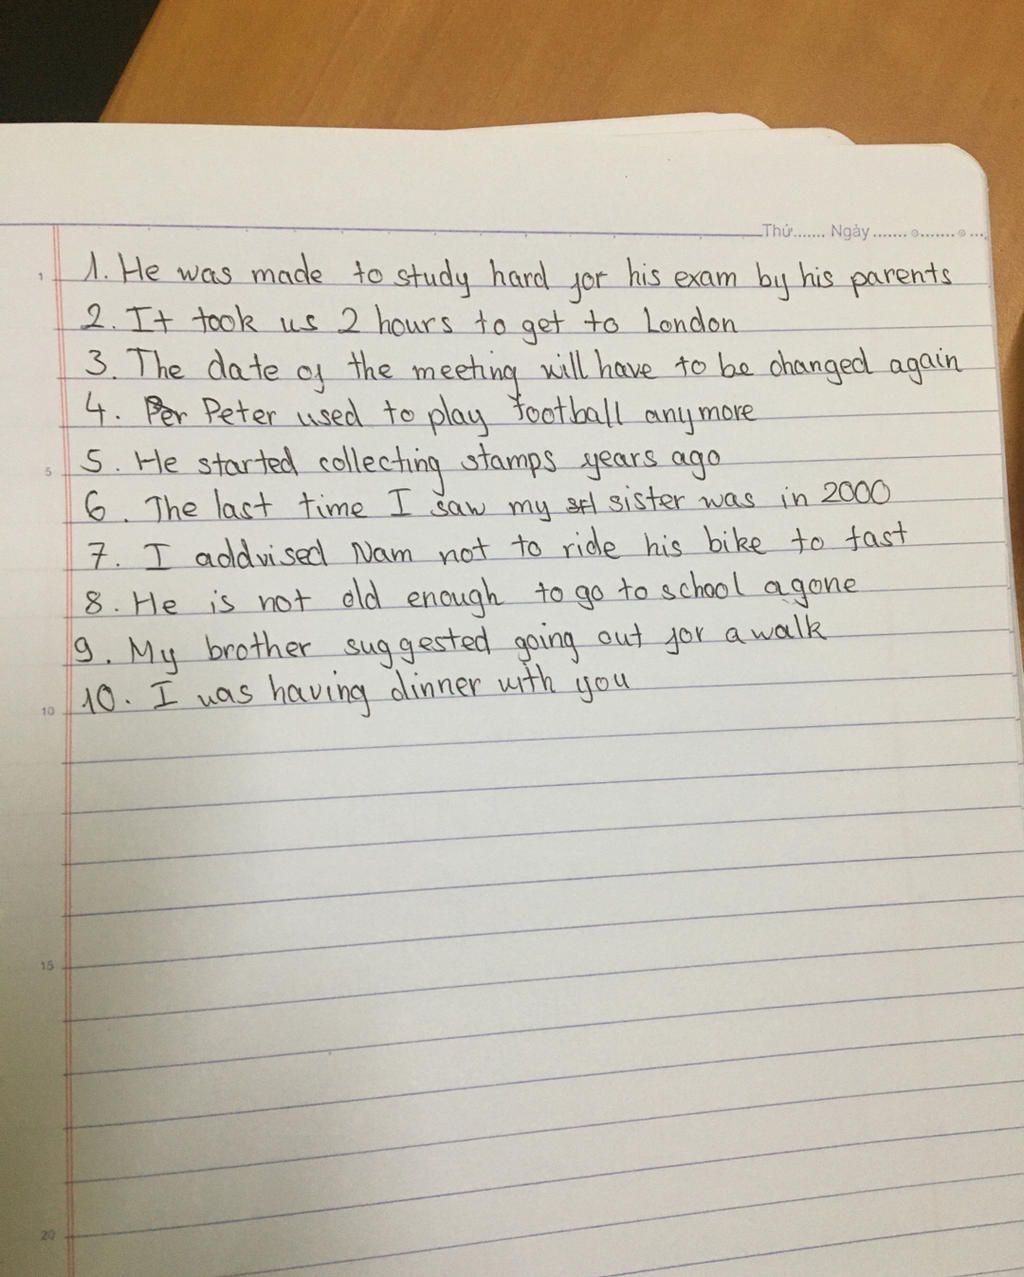 Thứ....... Ngày.......
1
1. He was made to study hard for his exam by his parents
2. It took us 2 hours to get to London
3. The date of the meeting will have to be changed again
4. Per Peter used to play football anymore
5
5. He started collecting stamps years ago
6. The last time I saw my sister was in 2000
7. I addvised Nam not to ride his bike to fast
8. He is not old enough to go to school agone
9. My brother suggested going out for a walk
10
10. I was having dinner with you
15
20